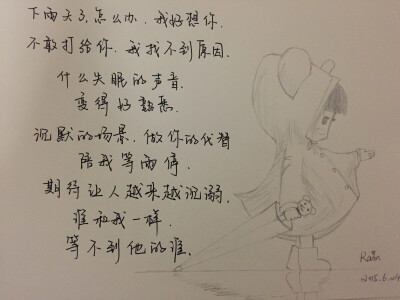 下雨天了,怎么办,我好想你,
不敢打给你,我找不到原因,
什么失眠的声音,
变得好熟悉,
沉默的场景,做你的代替
陪我等雨停,
期待让人越来越沉溺,
谁和我一样,
等不到他的谁,
Rain